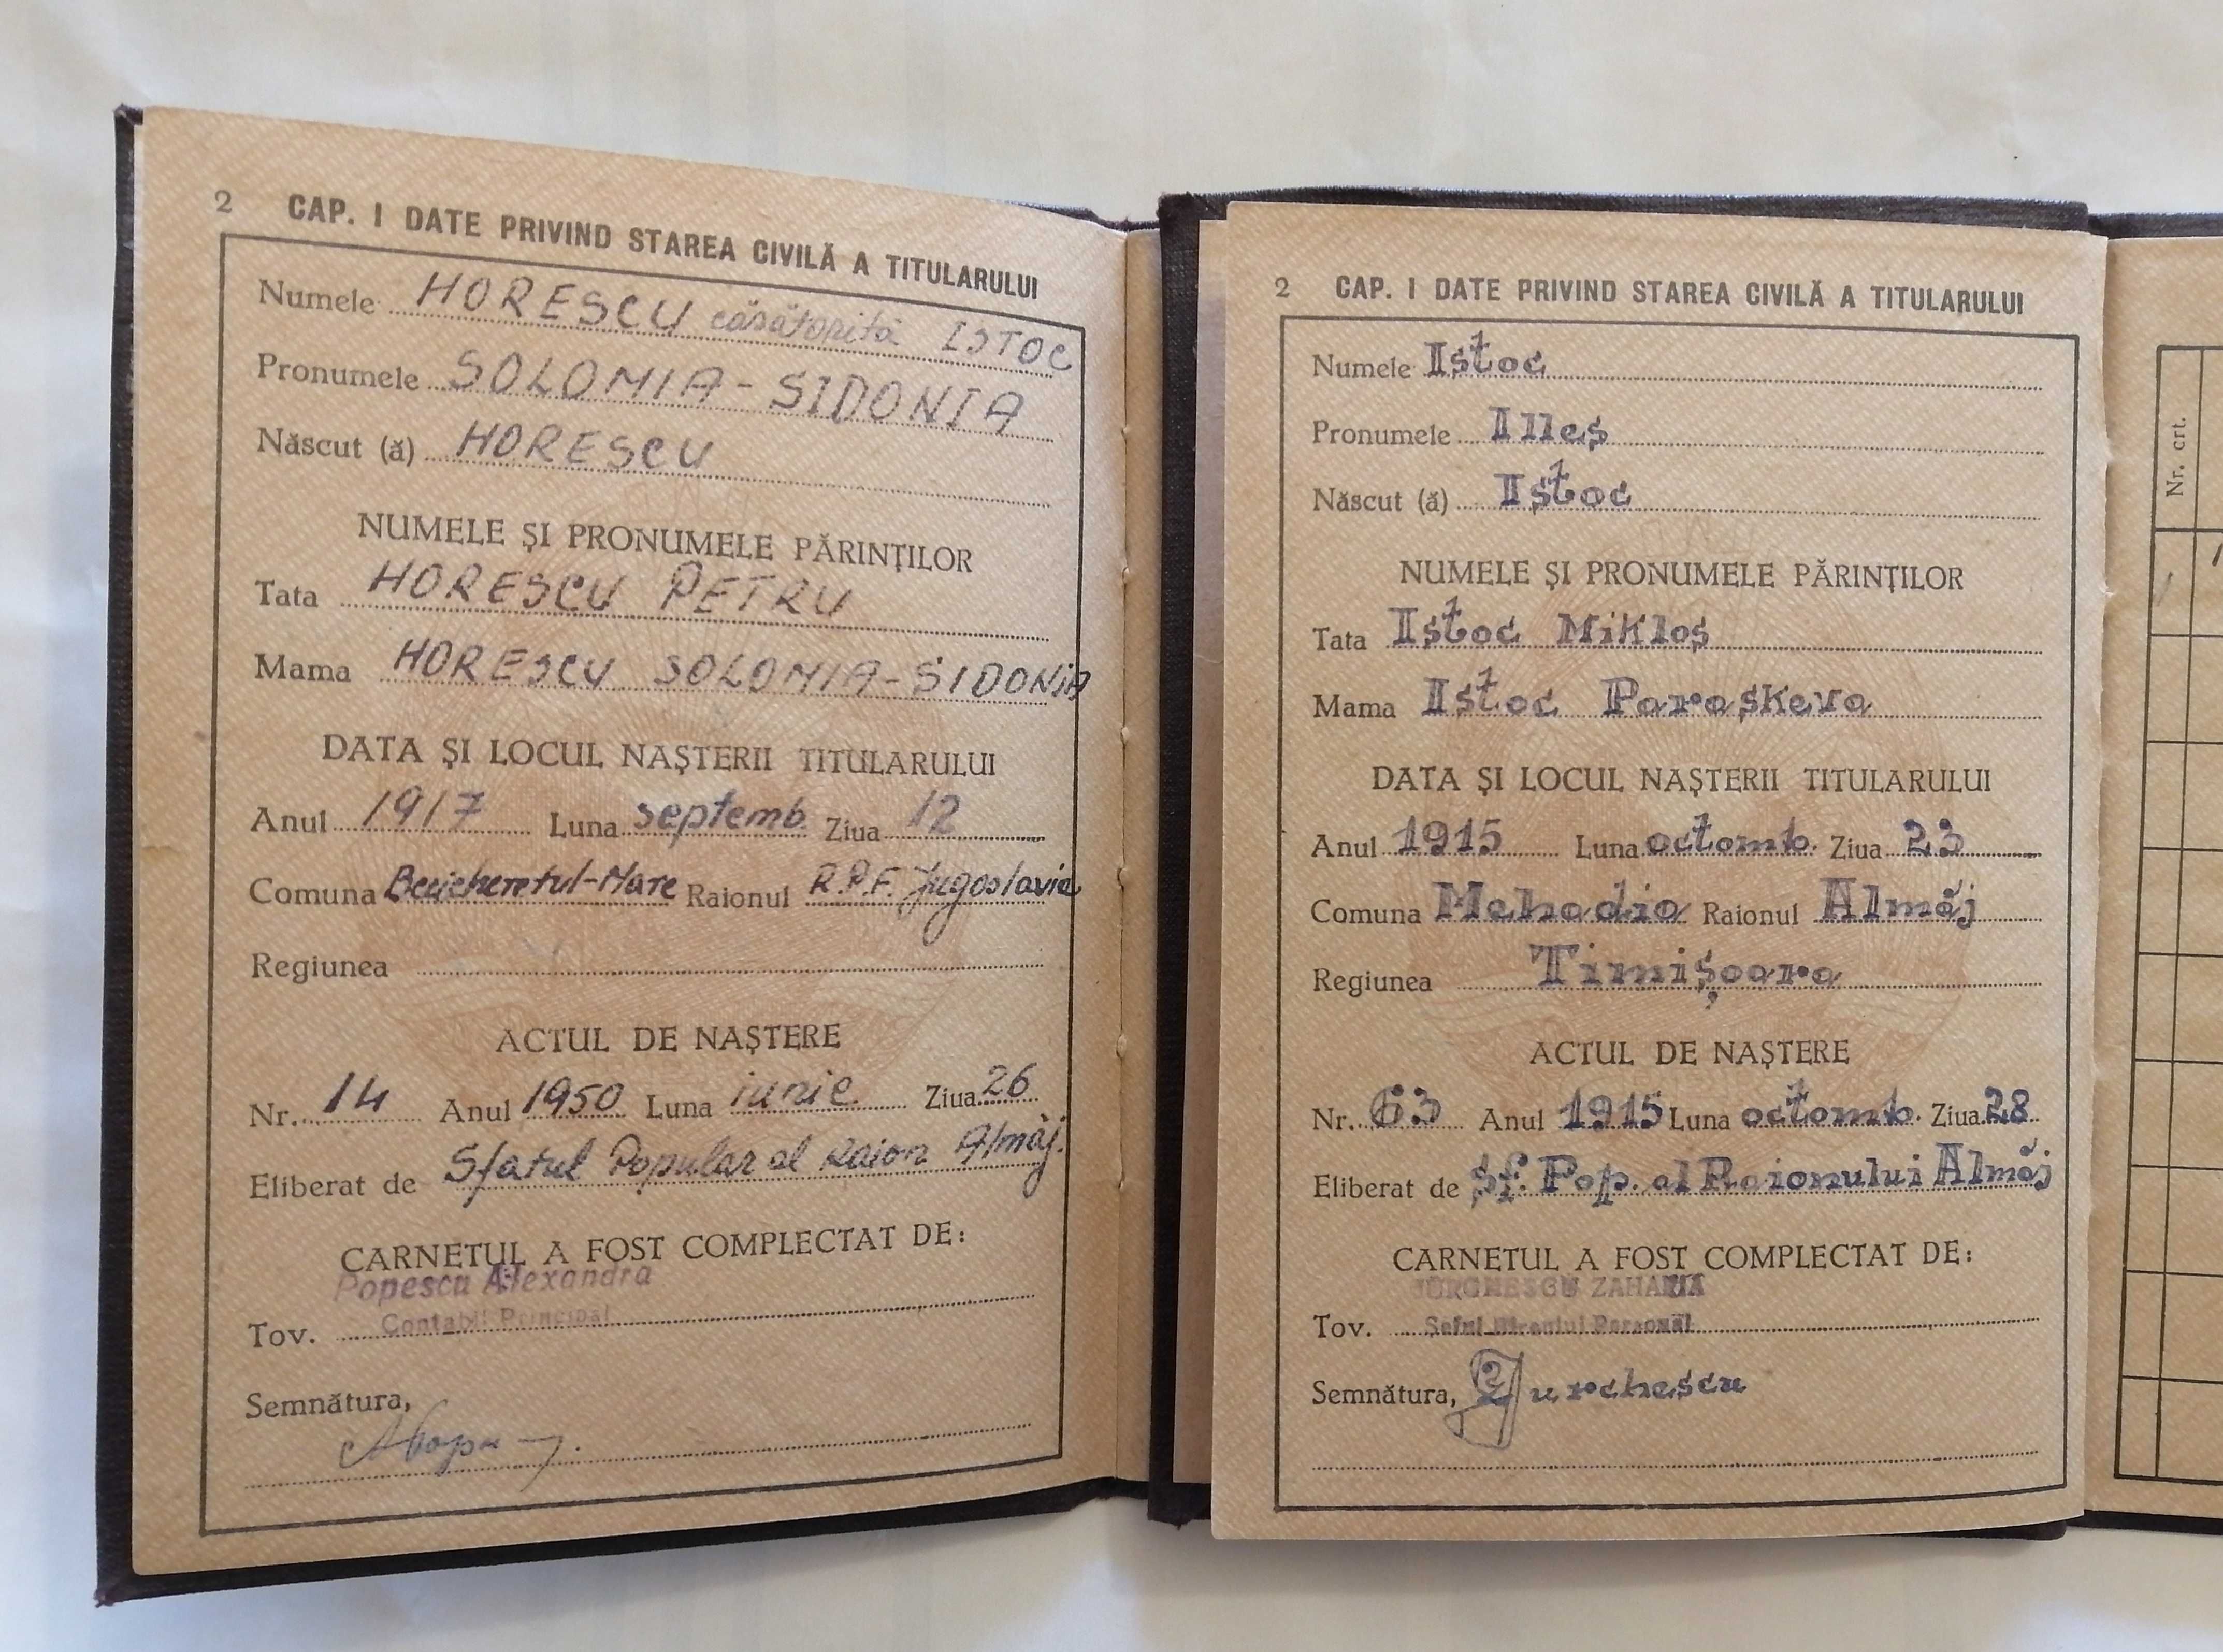 2 CAP. I DATE PRIVIND STAREA CIVILĂ A TITULARULUI
Numele HORESCU căsătorită ISTOC
Pronumele SOLOMIA-SIDONIA
Născut (ă) HORESCU
NUMELE ȘI PRONUMELE PĂRINȚILOR
Tata HORESCU PETRU
Mama HORESCU SOLOMIA-SIDONIA
DATA ȘI LOCUL NAȘTERII TITULARULUI
Anul 1917 Luna septemb. Ziua 12
Comuna Becicheretul-Mare Raionul R.P.F. Jugoslavia
Regiunea
ACTUL DE NAȘTERE
Nr. 14 Anul 1950 Luna iunie Ziua 26
Eliberat de Sfatul Popular al Raion Almăj.
CARNETUL A FOST COMPLECTAT DE:
Popescu Alexandra
Tov. Contabil Principal
Semnătura,
2 CAP. I DATE PRIVIND STAREA CIVILĂ A TITULARULUI
Numele Istoc
Pronumele Illeș
Născut (ă) Istoc
NUMELE ȘI PRONUMELE PĂRINȚILOR
Tata Istoc Mikloș
Mama Istoc Paraskeva
DATA ȘI LOCUL NAȘTERII TITULARULUI
Anul 1915 Luna octomb. Ziua 23
Comuna Mehadia Raionul Almăj
Regiunea Timișoara
ACTUL DE NAȘTERE
Nr. 63 Anul 1915 Luna octomb. Ziua 28
Eliberat de Sf. Pop. al Raionului Almăj
CARNETUL A FOST COMPLECTAT DE:
ZAHARIA
Tov. Șeful Biroului Personal
Semnătura, Jurchescu
Nr. crt.